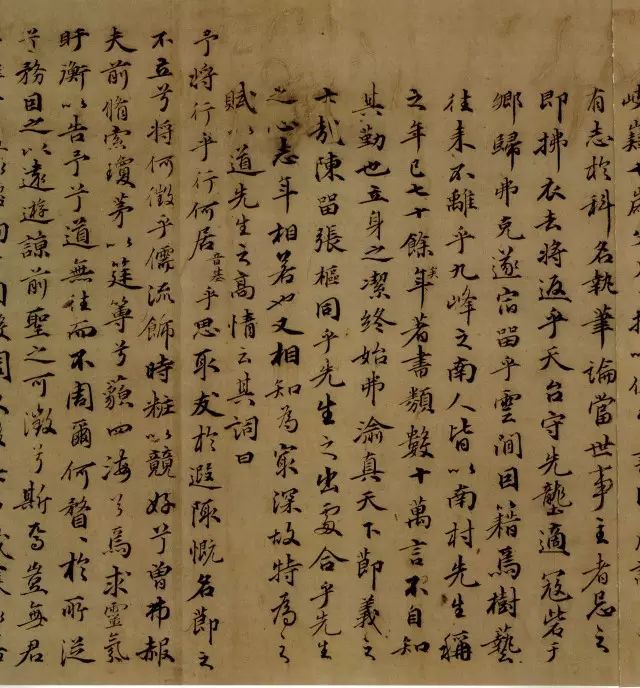 有志於科名執筆論當世事主者忌之
即拂衣去將返乎天台守先壟適寇訾于
鄉歸弗克遂宿留乎雲澗因籍焉樹藝
往来不離乎九峰之南人皆以南村先生稱
之年已七十餘矣年著書類數十萬言不自知
其勤也立身之潔終始弗渝真天下節義之
士哉陳留張樞同乎先生之出處合乎先生
之心志年相若也又相知為最深故特為之
賦以道先生之高情云其詞曰
予將行乎行何居音基乎思取友於遐陬慨名節之
不立兮將何徵乎儒流飾時粧以競好兮曾弗赧
夫前脩索瓊茅以筳篿兮藐四海兮焉求靈氛
盱衡以告予兮道無往而不周爾何瞀〻於所從
兮務因之以遠遊諒前聖之可徵兮斯焉豈無君